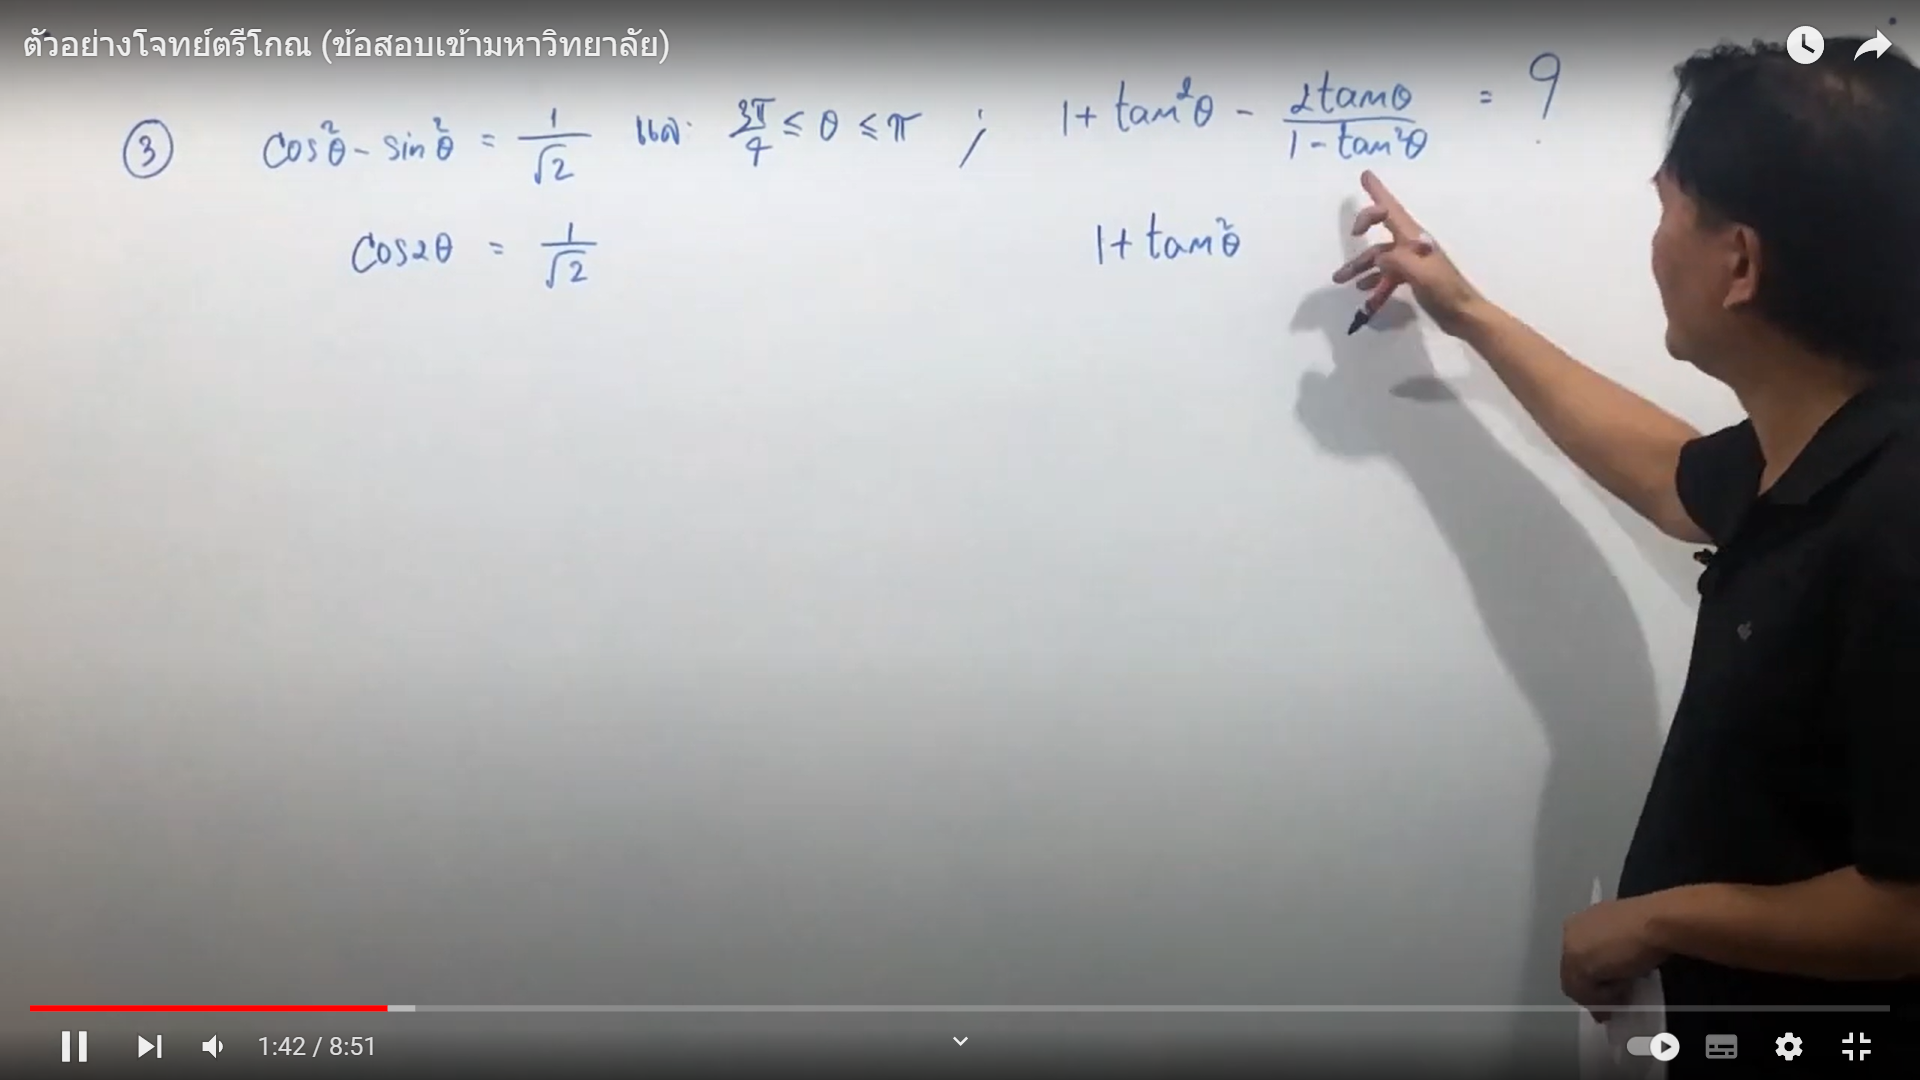 ตัวอย่างโจทย์ตรีโกณ (ข้อสอบเข้ามหาวิทยาลัย)
③ cos²θ - sin²θ = 1/√2 และ 3π/4 ≤ θ ≤ π ; 1 + tan²θ - 2tanθ/1 - tan²θ = ?
cos2θ = 1/√2 1 + tan²θ
1:42 / 8:51